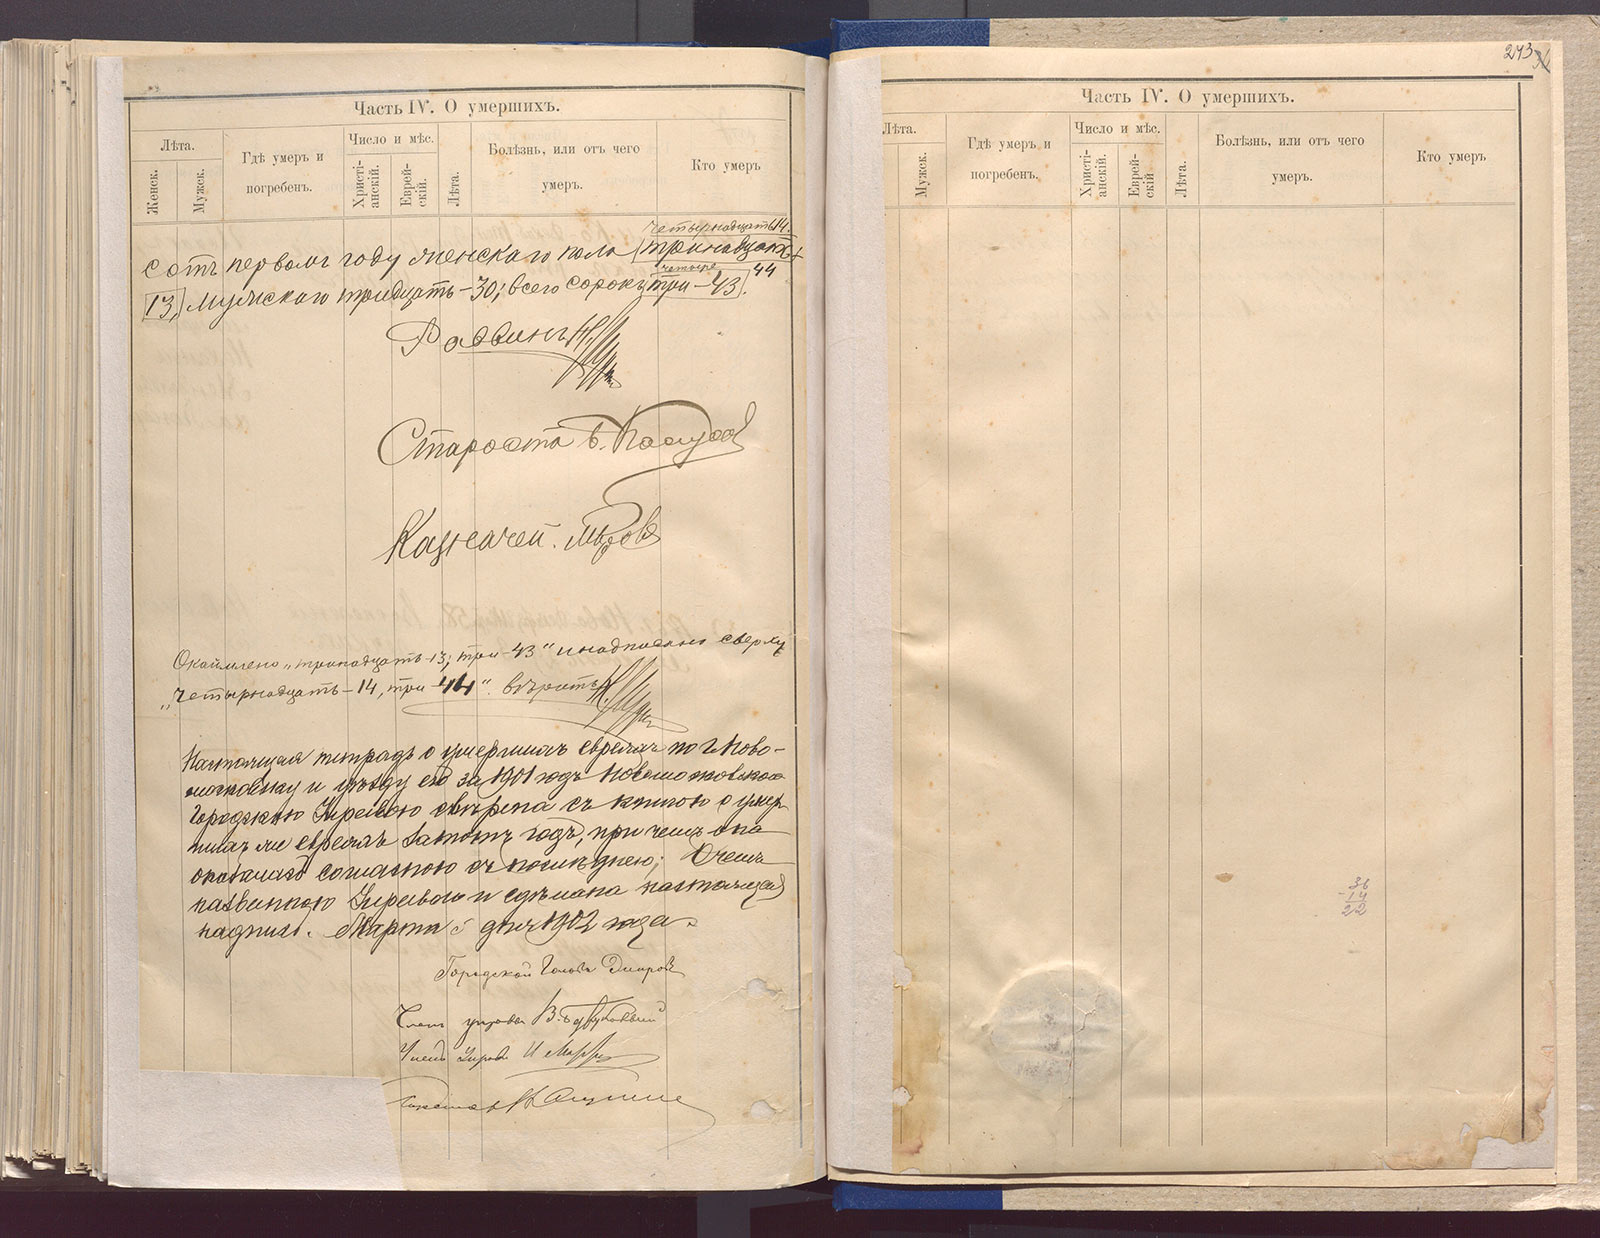 Часть IV. О умершихъ.
Лѣта.
Женск.
Мужск.
Гдѣ умеръ и
погребенъ.
Число и мѣс.
Христі-
анскій.
Еврей-
скій.
Лѣта.
Болѣзнь, или отъ чего
умеръ.
Кто умеръ
четырнадцать 14.
сотъ первомъ году женскаго пола тринадцать
четыре 44
13, мужскаго тридцать - 30; всего сорокъ три - 43.
Раввинъ
Староста
Казначей.
Окаймлено „тринадцать 13; три - 43“ и надписано сверху
„четырнадцать - 14, три - 44“. вѣрить
Настоящая тетрадь о умершихъ евреяхъ по г. Ново-
московску и уѣзду его за 1901 годъ Новомосковскою
Городскою Управою свѣрена съ книгою о умер-
шихъ же евреяхъ за тотъ годъ, при чемъ она
оказалась согласною съ послѣднею; О чемъ
названною Управою и сдѣлана настоящая
надпись. Марта 5 дня 1902 года.
Городской Голова
Членъ управы В.
Членъ Управы И
273
Часть IV. О умершихъ.
Лѣта.
Мужск.
Гдѣ умеръ и
погребенъ.
Число и мѣс.
Христі-
анскій.
Еврей-
скій
Лѣта.
Болѣзнь, или отъ чего
умеръ.
Кто умеръ
36
- 14
22